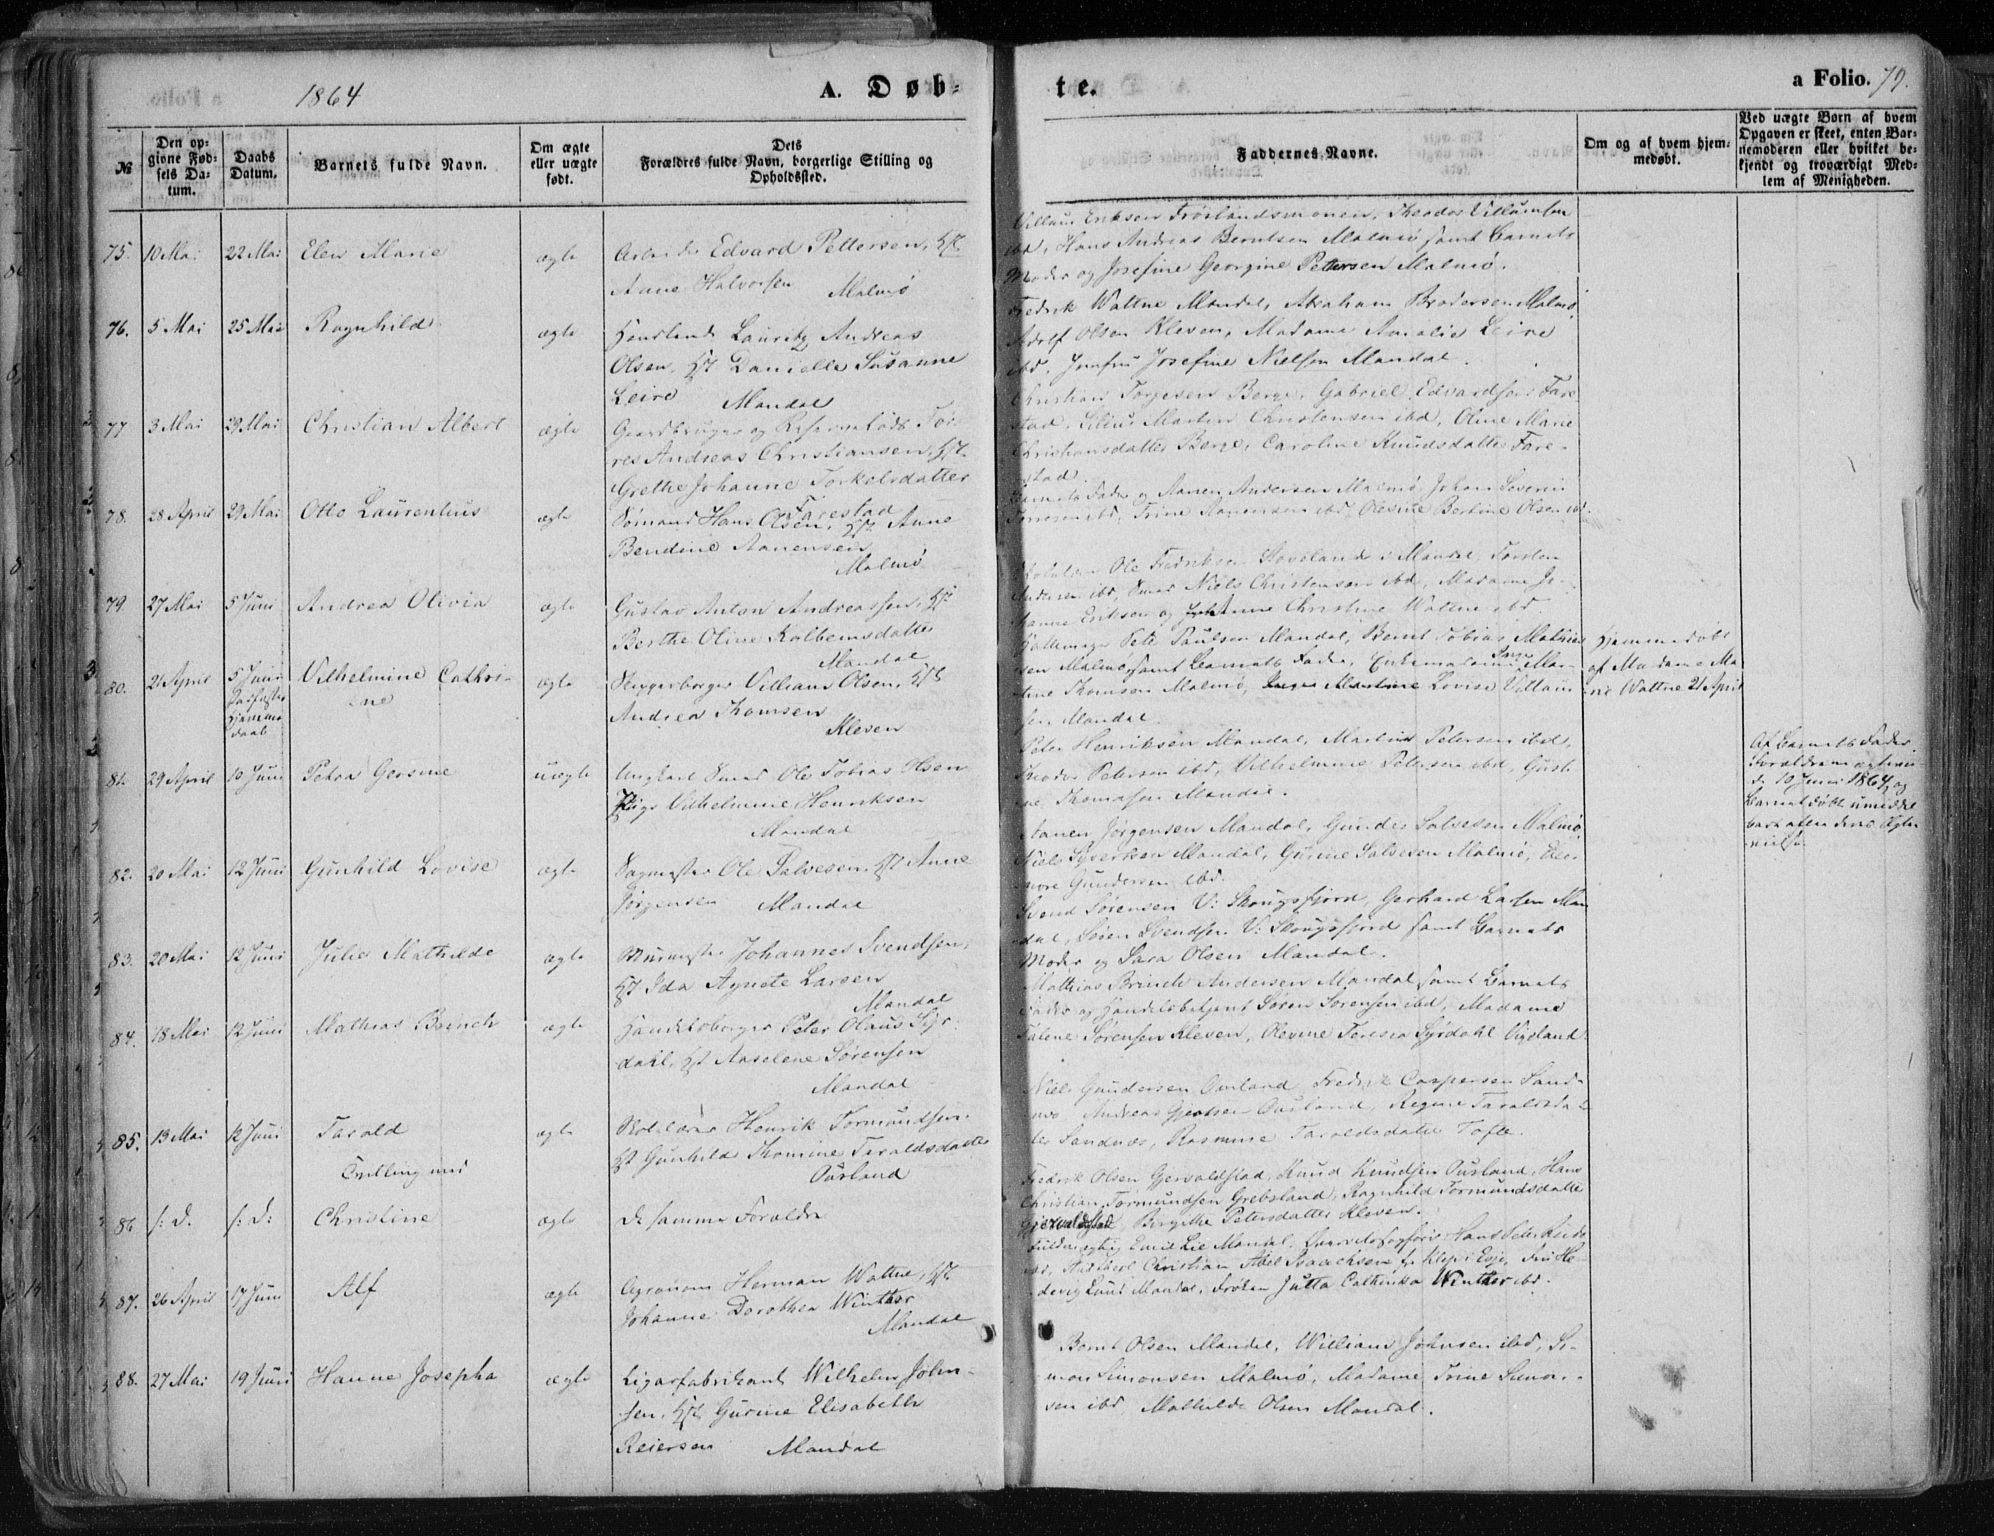 1864
A. Døb-
te.
a Folio. 79.
№
Den op-
givne Fød-
sels Da-
tum.
Daabs
Datum.
Barnets fulde Navn.
Om ægte
eller uægte
født.
Dets
Forældres fulde Navn, borgerlige Stilling og
Opholdssted.
Faddernes Navne.
Om og af hvem hjem-
medøbt.
Ved uægte Børn af hvem
Opgaven er skeet, enten Bar-
nemoderen eller hvilket be-
kjendt og troværdigt Med-
lem af Menigheden.
75. 10 Mai 22 Mai Elen Marie ægte Edvard Pettersen, Hst.
Anne Halvorsen Malmø
Eriksen Frøslandsmonen, Theodor Villumsen
ibd, Hans Andreas Berntsen Malmø samt Barnets
Moder og Josefine Georgine Pettersen Malmø.
76. 5 Mai 25 Mai Ragnhild ægte Lauritz Andreas
Olsen, Hst Danielle Susanne
Leire Mandal
Fredrik Wattne Mandal, Abraham Brodersen Malmø,
Adolf Olsen Kleven, Madame Amalie Leire
ibd, Jomfru Josefine Nielsen Mandal.
77 3 Mai 29 Mai Christian Albert ægte Gaardbruger og Tør-
res Andreas Christiansen, Hst.
Grethe Johanne Torkelsdatter
Farestad
Christian Torjesen Berge, Gabriel Edvardsen Fare-
stad, Martin Christensen ibd, Oline Marie
Christiansdatter Berge, Caroline Knudsdatter Fare-
stad.
78. 28 April 29 Mai Otto Laurentius ægte Sømand Hans Olsen, Hst Anne
Bendine Aanensen
Malmø
Barnets Fader og Aanen Andersen Malmø, Johan Severin
ibd, Trine Aanensen ibd, Olevine Bertine Olsen ibd.
79. 27 Mai 5 Juni Andrea Olivia ægte Gustav Anton Andreassen, Hst
Berthe Oline Kolbensdatter
Mandal
Ole Fredriksen Mandal,
Andersen ibd, Niels Christensen ibd, Madame Jo-
hanne Eriksen og Anne Christine Wattne ibd.
80. 21 April 5 Juni
Hjemme
daab
Vilhelmine Cathri-
ne ægte Villiam Olsen, Hst
Andrea Thomsen
Kleven
Paulsen Mandal, Bernt Tobias Mathias
sen Malmø, samt Barnets Fader, Enkemadame Mar-
tine Thomsen Malmø, Lovise Villum
sen Mandal.
Hjemmedøbt
af Madame Ma-
rie Wattne 21 April
81. 29 April 10 Juni Petra Gersine uægte Ungkarl Ole Tobias
Pige Vilhelmine Henriksen
Mandal
Peter Henriksen Mandal, Martin Petersen ibd,
Theodor Petersen ibd, Vilhelmine Petersen ibd, Gusti-
ne Thomasen Mandal.
Af Barnets Fader.
10 Juni 1864, og
Barnet døbt umiddel
bart efter
82. 20 Mai 12 Juni Gunhild Lovise ægte Ole Salvesen, Hst Anne
Jørgensen Mandal
Aanen Jørgensen Mandal, Gunder Salvesen Malmø,
Niels Syvertsen Mandal, Gurine Salvesen Malmø, Ele-
nore Gundersen ibd.
83. 20 Mai 12 Juni Julie Mathilde ægte Murmester Johannes Svendsen,
Hst Ida Agnete Larsen
Mandal
Svend Sørensen V: Skougsfjord, Gerhard Larsen Man
dal, Søren Svendsen V: Skougsfjord samt Barnets
Moder og Sara Olsen Mandal.
84. 18 Mai 12 Juni Mathias Brinch ægte Handelsborger Peter Olaus Syr-
dahl, Hst Aaselene Sørensen
Mandal
Mathias Brinch Andersen Mandal samt Barnets
Fader og Handelsbetjent Søren Sørensen ibd, Madame
Sørensen Kleven, Olevine Teresia Syrdahl Vigeland.
85. 13 Mai 12 Juni Tarald
Tvilling med
ægte Skolelærer Henrik Tormundsen
Hst Gunhild Thomine Taraldsdatter
Ousland
Niels Gundersen Ousland, Fredrik Caspersen Sand-
næs, Andreas Gjertsen Ousland, Regine Taraldsdat-
ter Sandnæs, Rasmine Taraldsdatter Tofte.
86 s: d. s: d: Christine ægte De samme Forældre
Fredrik Olsen Gjervoldstad, Knud Knudsen Ousland, Hans
Christian Tormundsen Grebsland, Ragnhild Tormundsdatter
Gjervoldstad, Birgithe Petersdatter Kleven.
87. 26 April 17 Juni Alf ægte Agronom Herman Wattne, Hst
Johanne Dorothea Winther
Mandal
Emil Lie Mandal, Hans Peter
Christian Abel Isaachsen
Mandal, Frøken Jutta Cathinka Winther ibd.
88. 27 Mai 19 Juni Hanne Josepha ægte Cigarfabrikant Wilhelm John-
sen, Hst Gurine Elisabeth
Reiersen Mandal
Bernt Olsen Mandal, William Johnsen ibd, Si-
mon Simonsen Malmø, Madame Trine Simon-
sen ibd, Mathilde Olsen Mandal.